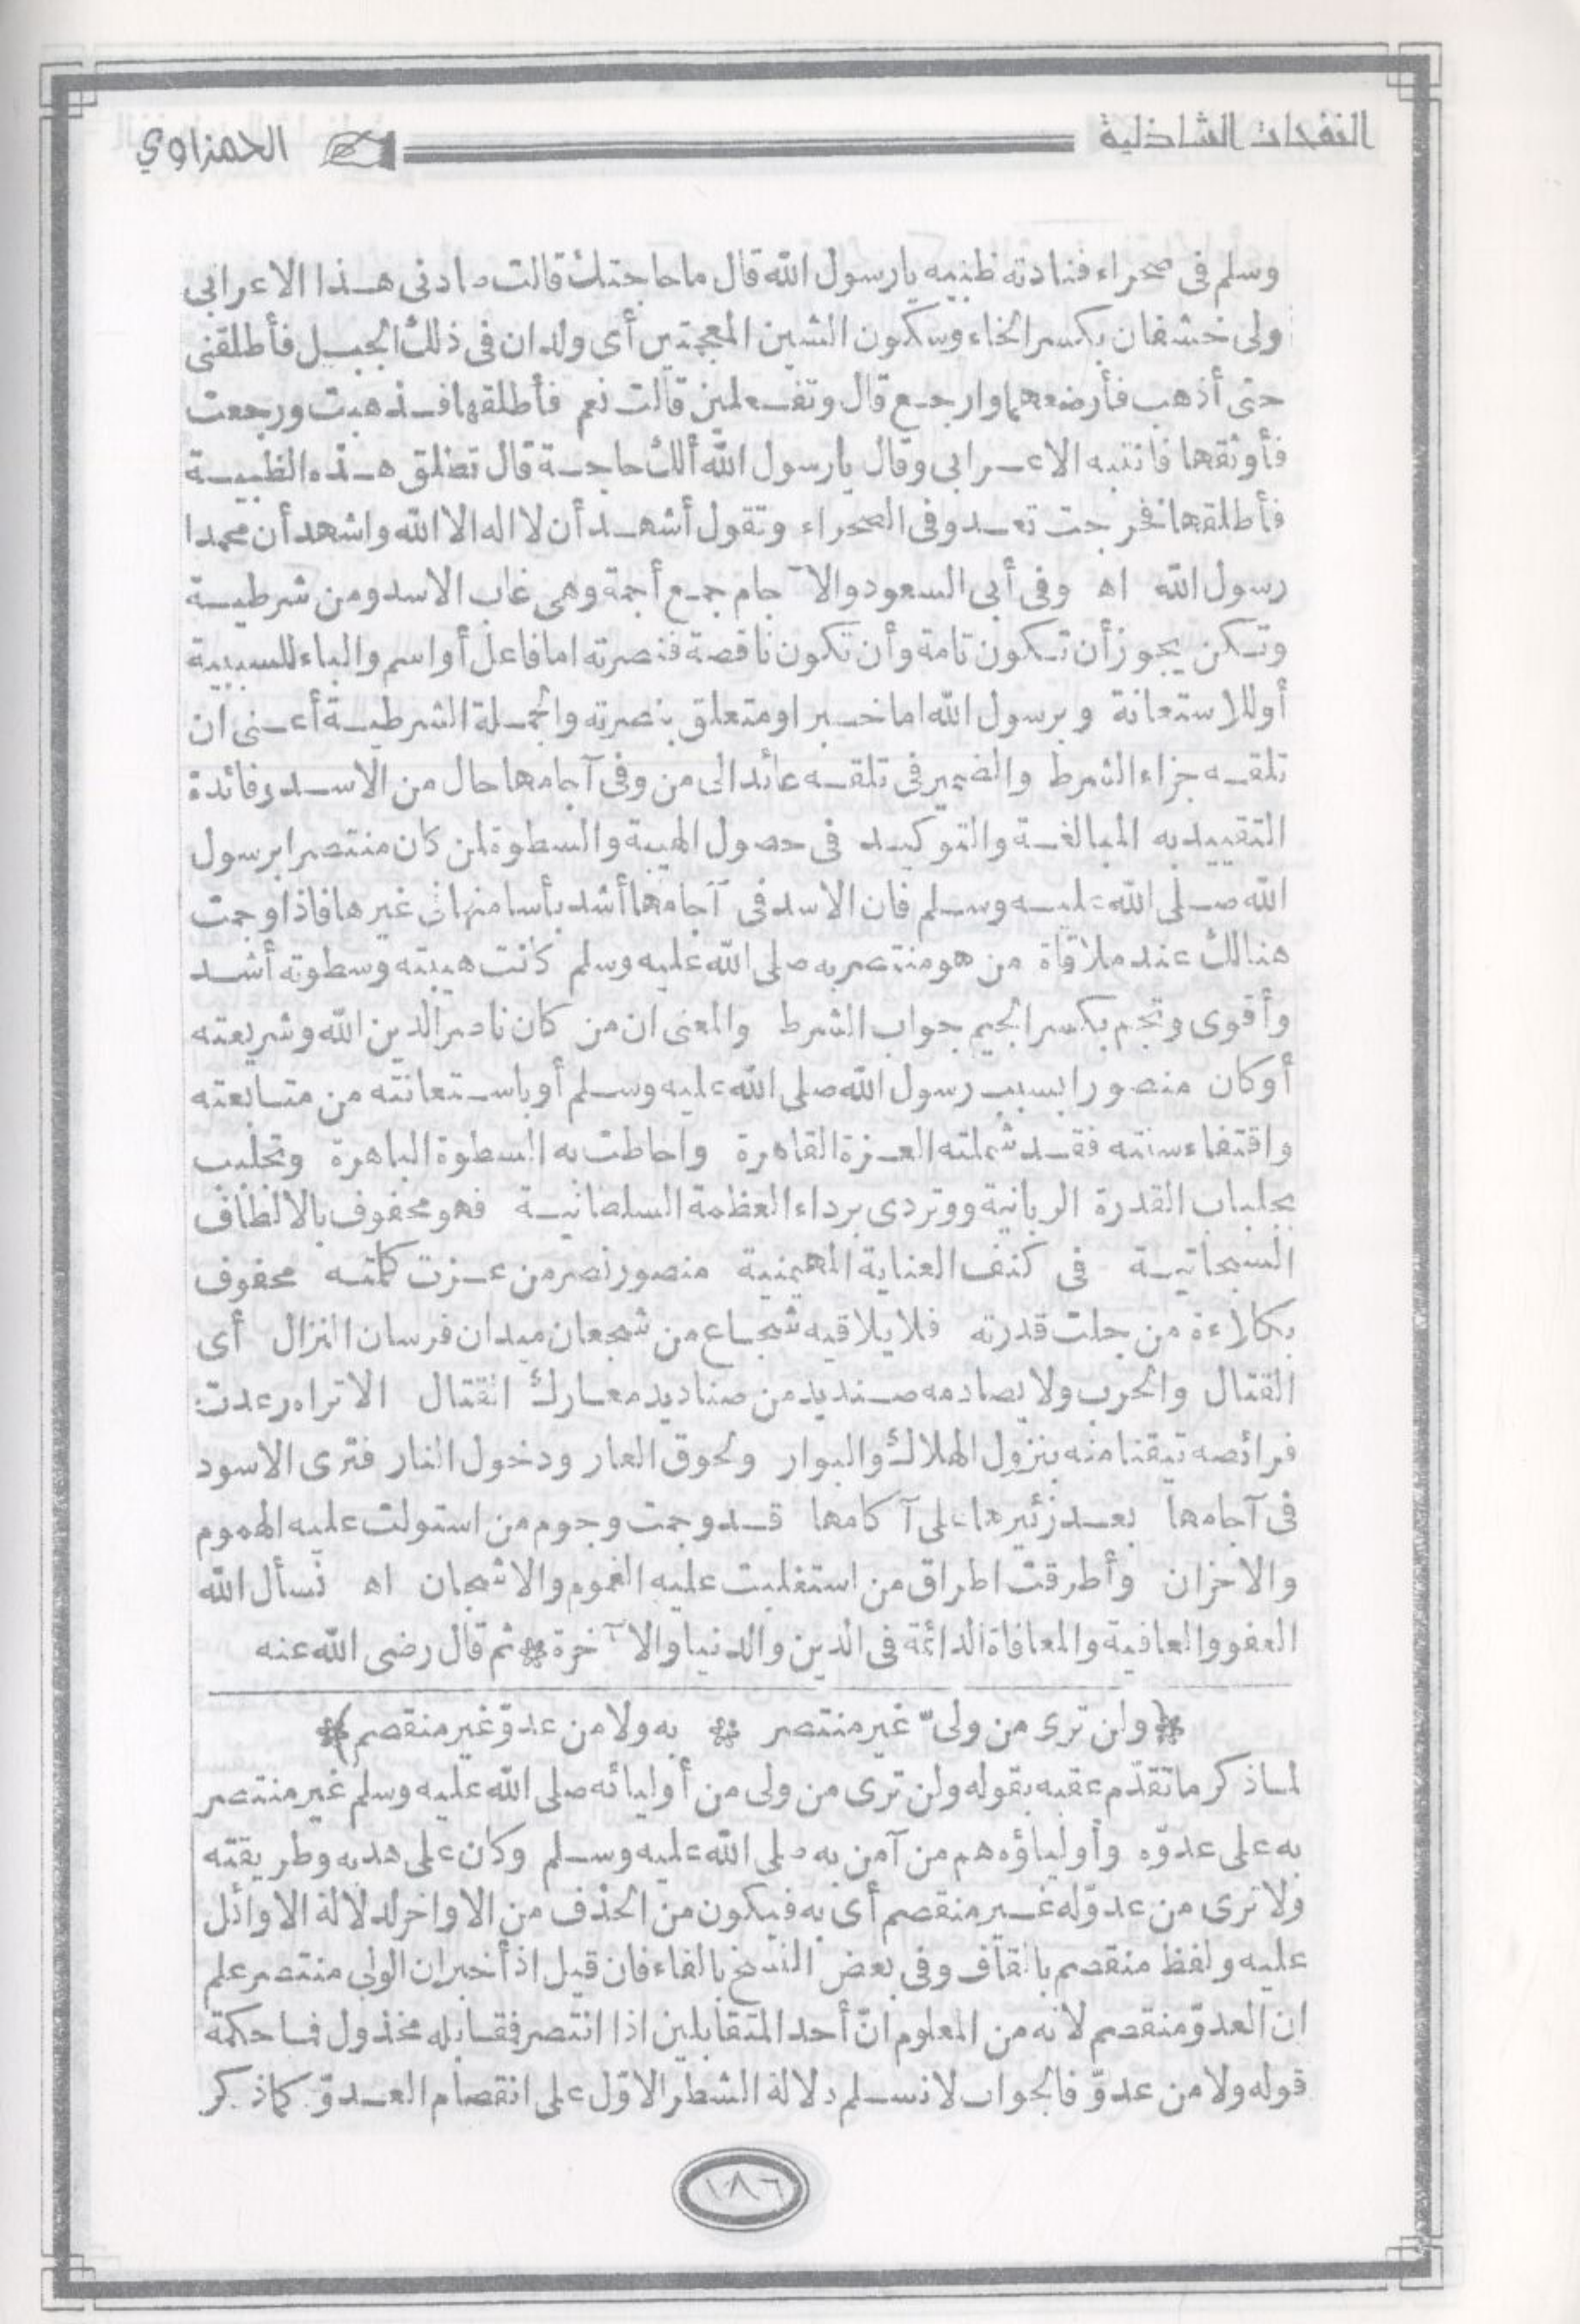 النفحات الشاذلية
الحمزاوي
وسلم فى صحراء فنادته ظبيه يا رسول الله قال ما حاجتك قالت صادنى هذا الاعرابى
ولى خشفان بكسر الخاء وسكون الشين المعجمتين أى ولدان فى ذلك الجبل فأطلقنى
حتى أذهب فأرضعهما وارجع قال وتفعلين قالت نعم فأطلقها فذهبت ورجعت
فأوثقها فانتبه الاعرابى وقال يا رسول الله ألك حاجة قال تطلق هذه الظبية
فأطلقها فخرجت تعدو فى الصحراء وتقول أشهد أن لا اله الا الله واشهد أن محمدا
رسول الله اه وفى أبى السعود والآجام جمع أجمة وهى غاب الاسد ومن شرطية
وتكن يجوز أن تكون تامة وأن تكون ناقصة فنصرته اما فاعل أو اسم والباء للسببية
أو للاستعانة وبرسول الله اما خبر او متعلق بنصرته والجملة الشرطية أعنى ان
تلقه جزاء الشرط والضمير فى تلقه عائد الى من وفى آجامها حال من الاسد وفائدة
التقييد به المبالغة والتوكيد فى حصول الهيبة والسطوة لمن كان منتصرا برسول
الله صلى الله عليه وسلم فان الاسد فى آجامها أشد بأسا منها فى غيرها فاذا وجمت
هنالك عند ملاقاة من هو منتصر به صلى الله عليه وسلم كانت هيبته وسطوته أشد
وأقوى وتجم بكسر الجيم جواب الشرط والمعنى ان من كان ناصر الدين الله وشريعته
أو كان منصورا بسبب رسول الله صلى الله عليه وسلم أو باستعانته من متابعته
واقتفاء سنته فقد شملته العزة القاهرة واحاطت به السطوة الباهرة وتجلبب
بجلباب القدرة الربانية ووتردى برداء العظمة السلطانية فهو محفوف بالالطاف
السبحانية فى كنف العناية المهيمنية منصور نصر من عزت كلمته محفوف
بكلاءة من جلت قدرته فلا يلاقيه شجاع من شجعان ميدان فرسان النزال أى
القتال والحرب ولا يصادمه صنديد من صناديد معارك القتال الا تراه رعدت
فرائصه تيقنا منه بنزول الهلاك والبوار ولحوق العار ودخول النار فترى الاسود
فى آجامها بعد زئيرها على آكامها قد وجمت وجوم من استولت عليه الهموم
والاحزان وأطرقت اطراق من استغلبت عليه الغموم والاشجان اه نسأل الله
العفو والعافية والمعافاة الدائمة فى الدين والدنيا والآخرة * ثم قال رضى الله عنه
* ولن ترى من ولىّ غير منتصر * به ولا من عدوّ غير منقصم *
لما ذكر ما تقدّم عقبه بقوله ولن ترى من ولى من أوليائه صلى الله عليه وسلم غير منتصر
به على عدوّه وأولياؤه هم من آمن به صلى الله عليه وسلم وكان على هديه وطريقته
ولا ترى من عدوّ له غير منقصم أى به فيكون من الحذف من الاواخر لدلالة الاوائل
عليه ولفظ منقصم بالقاف وفى بعض النسخ بالفاء فان قيل اذ أخبر ان الولى منتصر علم
ان العدوّ منقصم لانه من المعلوم انّ أحد المتقابلين اذا انتصر فقابله مخذول فما حكمة
قوله ولا من عدوّ فالجواب لا نسلم دلالة الشطر الاوّل على انقصام العدوّ كما ذكر
١٠٨٦